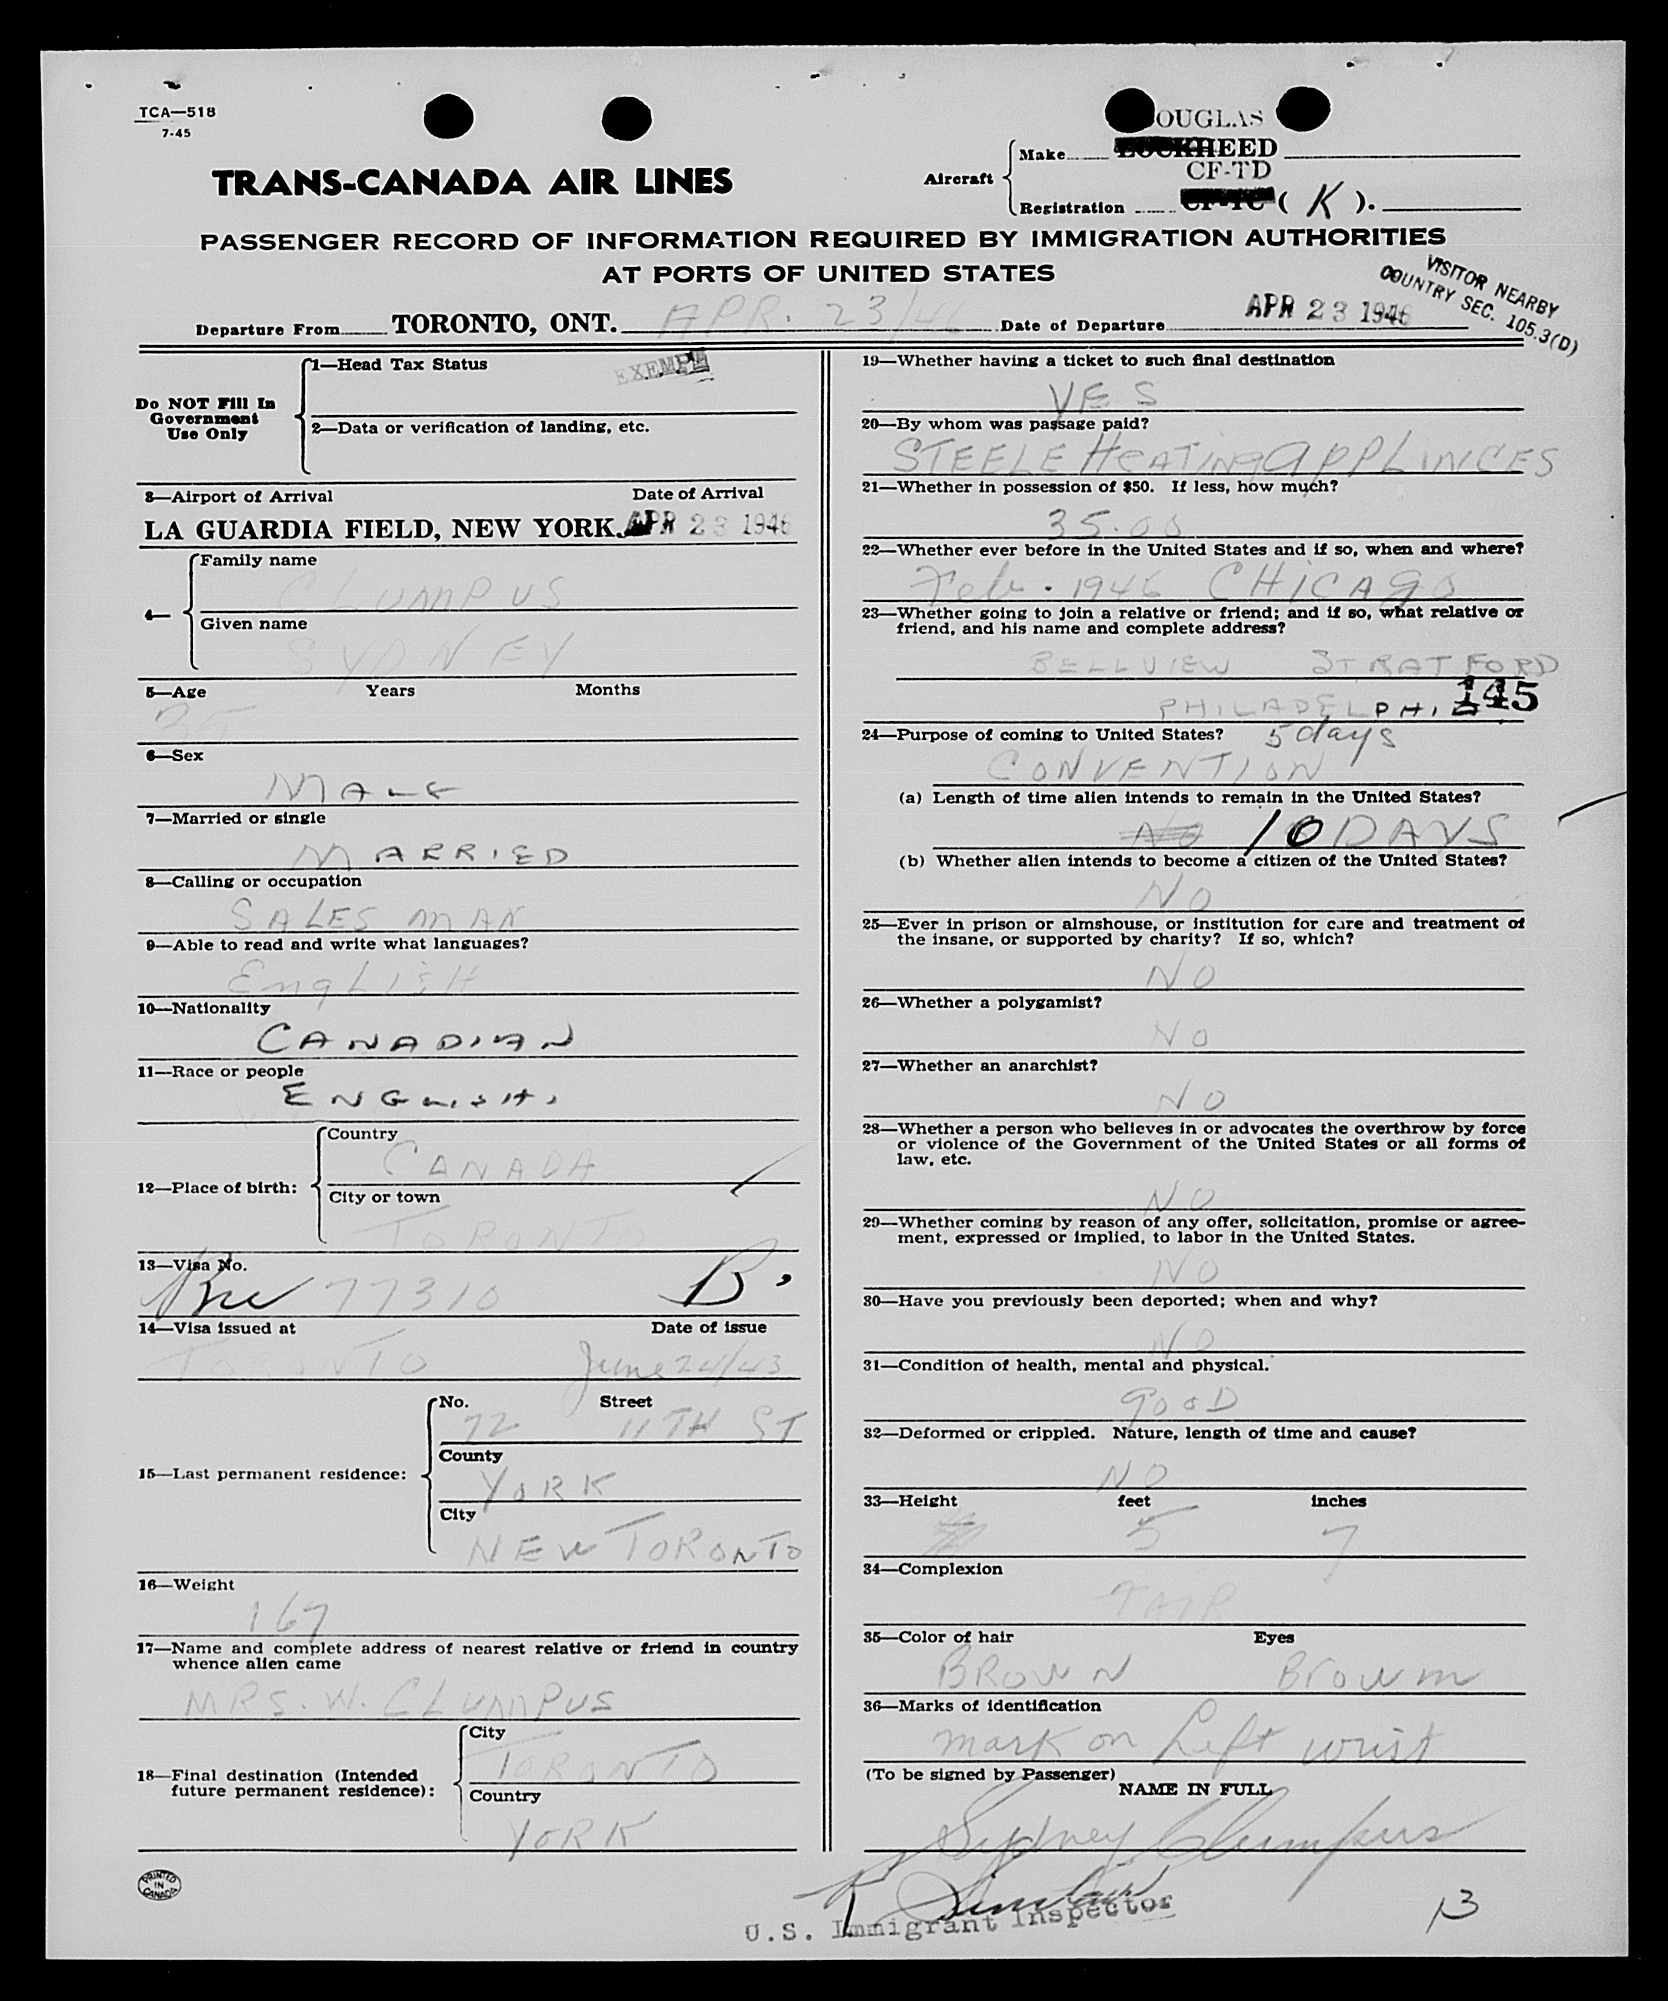 TCA—518
7-45
TRANS-CANADA AIR LINES
Aircraft
OUGLAS
Make LOCKHEED
CF-TD
Registration CF-TC ( K ).
PASSENGER RECORD OF INFORMATION REQUIRED BY IMMIGRATION AUTHORITIES
AT PORTS OF UNITED STATES
VISITOR NEARBY
COUNTRY SEC. 105.3(D)
Departure From TORONTO, ONT. APR. 23/46 Date of Departure APR 23 1946
Do NOT Fill In
Government
Use Only
1—Head Tax Status EXEMPT
2—Data or verification of landing, etc.
3—Airport of Arrival Date of Arrival
LA GUARDIA FIELD, NEW YORK. APR 23 1946
4—
Family name
CLUMPUS
Given name
SYDNEY
5—Age Years Months
35
6—Sex
MALE
7—Married or single
MARRIED
8—Calling or occupation
SALESMAN
9—Able to read and write what languages?
ENGLISH
10—Nationality
CANADIAN
11—Race or people
ENGLISH.
12—Place of birth:
Country
CANADA
City or town
TORONTO
13—Visa No.
77310 B.
14—Visa issued at Date of issue
TORONTO June 24/43
15—Last permanent residence:
No. Street
72 11TH ST
County
YORK
City
NEW TORONTO
16—Weight
167
17—Name and complete address of nearest relative or friend in country
whence alien came
MRS. W. CLUMPUS
18—Final destination (Intended
future permanent residence):
City
TORONTO
Country
YORK
PRINTED
IN
CANADA
19—Whether having a ticket to such final destination
YES
20—By whom was passage paid?
STEELE HEATING APPLINCES
21—Whether in possession of $50. If less, how much?
35.00
22—Whether ever before in the United States and if so, when and where?
Feb. 1946 CHICAGO
23—Whether going to join a relative or friend; and if so, what relative or
friend, and his name and complete address?
BELLVIEW STRATFORD
PHILADELPHIA 145
24—Purpose of coming to United States? 5 days
CONVENTION
(a) Length of time alien intends to remain in the United States?
NO 10 DAYS
(b) Whether alien intends to become a citizen of the United States?
NO
25—Ever in prison or almshouse, or institution for care and treatment of
the insane, or supported by charity? If so, which?
NO
26—Whether a polygamist?
NO
27—Whether an anarchist?
NO
28—Whether a person who believes in or advocates the overthrow by force
or violence of the Government of the United States or all forms of
law, etc.
NO
29—Whether coming by reason of any offer, solicitation, promise or agree-
ment, expressed or implied, to labor in the United States.
NO
30—Have you previously been deported; when and why?
NO
31—Condition of health, mental and physical.
GOOD
32—Deformed or crippled. Nature, length of time and cause?
NO
33—Height feet inches
5 7
34—Complexion
FAIR
35—Color of hair Eyes
BROWN Brown
36—Marks of identification
mark on Left wrist
(To be signed by Passenger)
NAME IN FULL
Sydney Clumpus
Sinclair
U.S. Immigrant Inspector
13